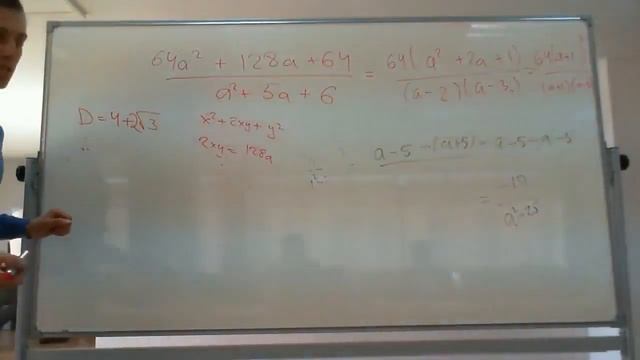 64a² + 128a + 64 / a² + 5a + 6 = 64(a² + 2a + 1) / (a-2)(a-3) = 64(a+1)
D = 4+2√3
x² + 2xy + y²
2xy = 128a
= a-5-(a+5) = a-5-a-5
= -10 / a²-25